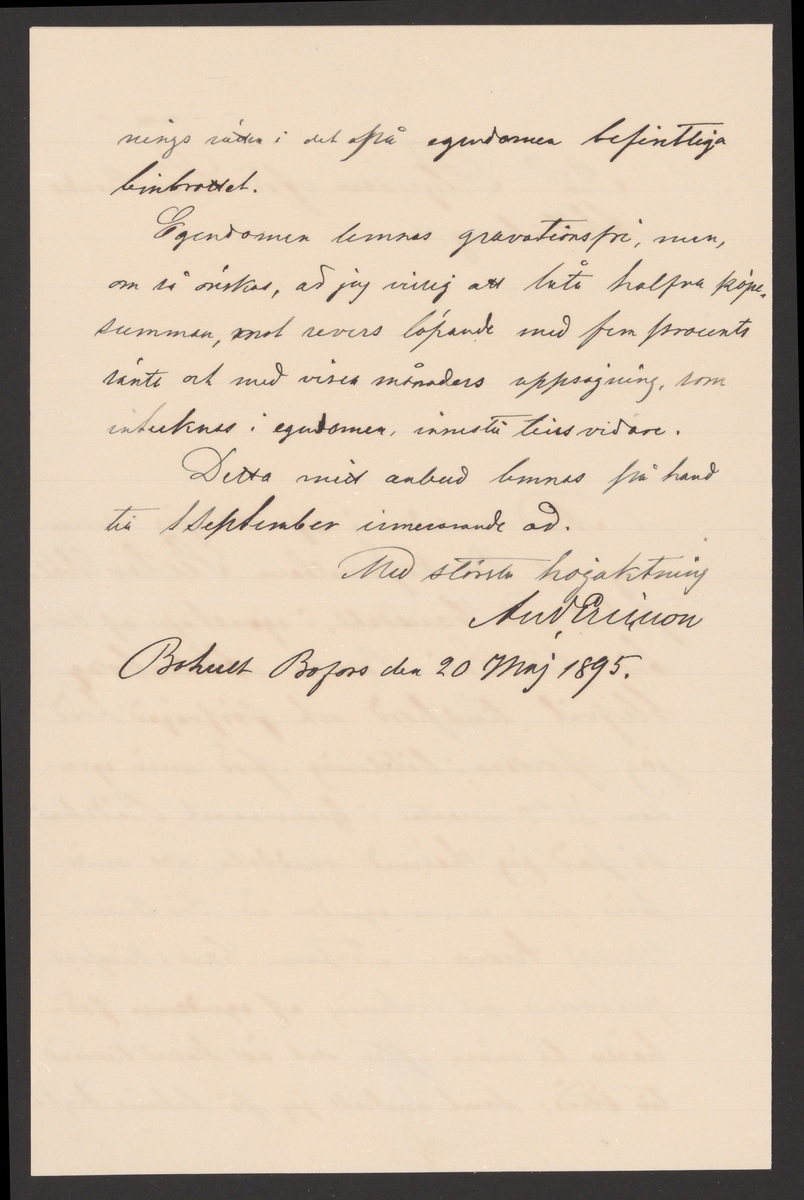 nings rätten i det på egendomen befintliga
Egendomen lemnas gravationsfri, men,
om så önskas, är jag villig att låta halfva köpe-
summan, mot revers löpande med fem procents
ränta och med  månaders uppsägning, som
intecknas i egendomen, innestå tills vidare.
Detta mitt anbud lemnas på hand
till 1 September innevarande år.
Med största högaktning
And Ericsson
Bohult Bofors den 20 Maj 1895.